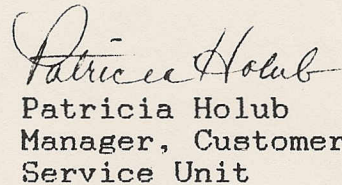 Patricia Holub
Patricia Holub
Manager, Customer
Service Unit